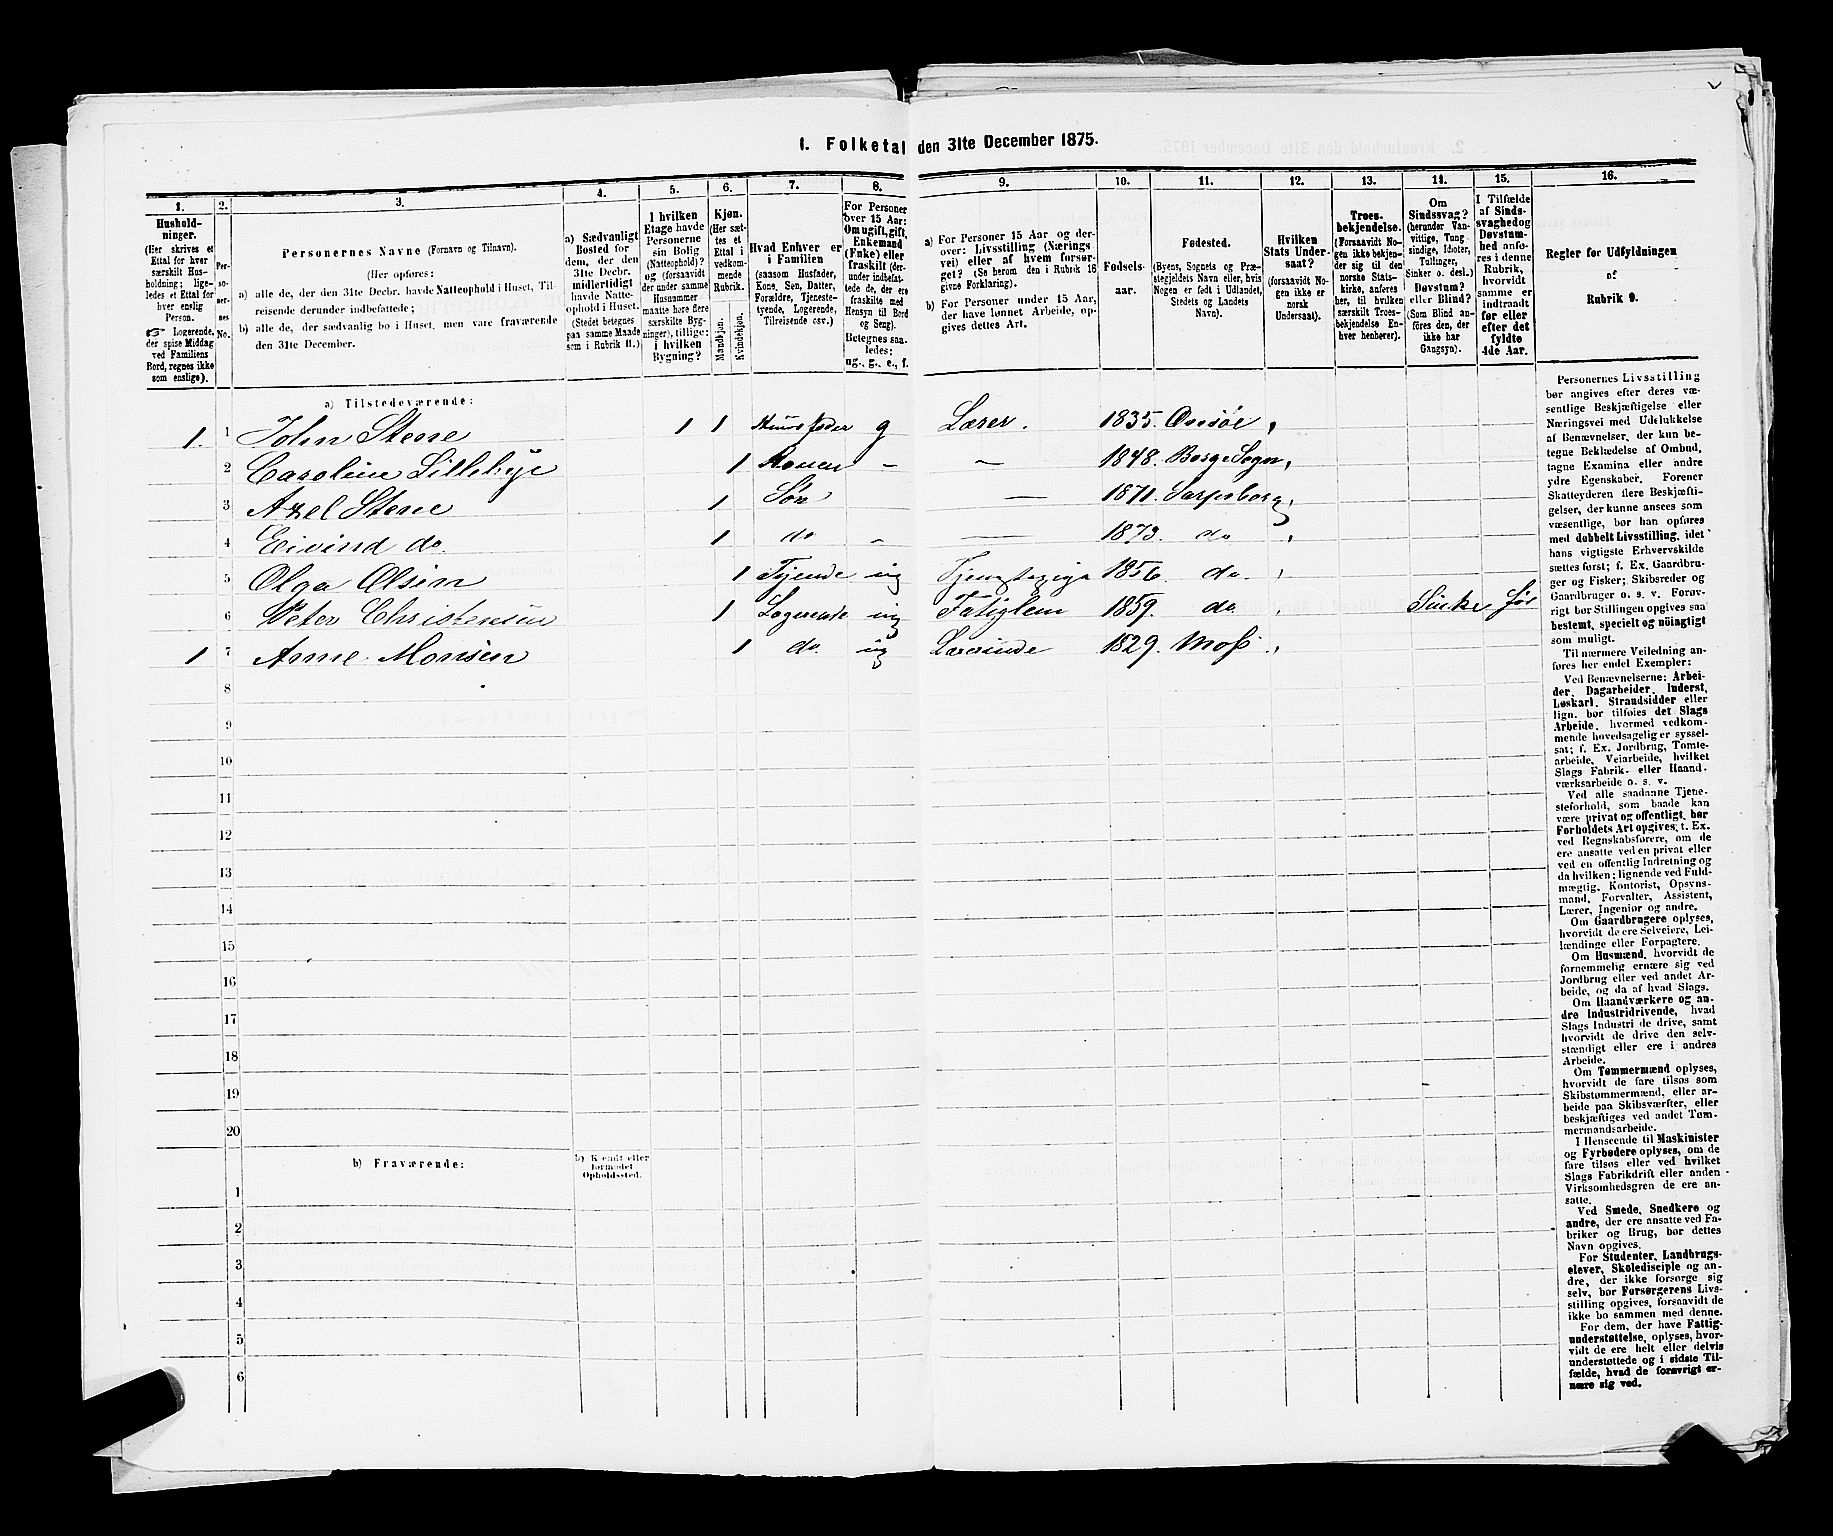 1. Folketal den 31te December 1875.
1. 2. 3. 4. 5. 6. 7. 8. 9. 10. 11. 12. 13. 14. 15. 16.
Hushold-
ninger.
(Her skrives et
Ettal for hver
særskilt Hus-
holdning; lige-
ledes et Ettal for
hver enslig
Person.
☞ Logerende,
der spise Middag
ved Familiens
Bord, regnes ikke
som enslige).
Per-
so-
ner-
nes
No.
Personernes Navne (Fornavn og Tilnavn).
(Her opføres:
a) alle de, der den 31te Decbr. havde Natteophold i Huset, Til-
reisende derunder indbefattede;
b) alle de, der sædvanlig bo i Huset, men vare fraværende
den 31te December.
a) Sædvanligt
Bosted for
dem, der den
31te Decbr.
midlertidigt
havde Natte-
ophold i Huset.
(Stedet betegnes
paa samme Maade
som i Rubrik 11.)
I hvilken
Etage havde
Personerne
sin Bolig
(Natteophold)?
og (forsaavidt
der under samme
Husnummer
maatte høre flere
særskilte Byg-
ninger), tillige:
i hvilken
Bygning?
Kjøn.
(Her sæt-
tes et
Ettal i
vedkom-
mende
Rubrik.
Mandkjøn.
Kvindekjøn.
Hvad Enhver er
i Familien
(saasom Husfader,
Kone, Søn, Datter,
Forældre, Tjeneste-
tyende, Logerende,
Tilreisende osv.)
For Personer
over 15 Aar:
Om ugift, gift,
Enkemand
(Enke) eller
fraskilt (der-
under indbefat-
tede de, der ere
fraskilte med
Hensyn til Bord
og Seng).
Betegnes saa-
ledes:
ug., g., e., f.
a) For Personer 15 Aar og der-
over: Livsstilling (Nærings
vei) eller af hvem forsør-
get? (Se herom den i Rubrik 16
givne Forklaring).
b) For Personer under 15 Aar,
der have lønnet Arbeide, op-
gives dettes Art.
Fødsels-
aar.
Fødested.
(Byens, Sognets og Præ-
stegjeldets Navn eller, hvis
Nogen er født i Udlandet,
Stedets og Landets
Navn).
Hvilken
Stats Under-
saat?
(forsaavidt No-
gen ikke er
norsk
Undersaat).
Troes-
bekjendelse.
(Forsaavidt No-
gen ikke bekjen-
der sig til den
norske Stats-
kirke, anføres
her, til hvilken
særskilt Troes-
bekjendelse En-
hver henhører).
Om
Sindssvag?
(herunder Van-
vittige, Tung-
sindige, Idioter,
Tullinger,
Sinker o. desl.)
Døvstum?
eller Blind?
(Som Blind an-
føres den, der
ikke har
Gangsyn).
I Tilfælde
af Sinds-
svaghed og
Døvstum-
hed anfø-
res i denne
Rubrik,
hvorvidt
samme er
indtraadt
før eller
efter det
fyldte
4de Aar.
Regler for Udfyldningen
af
Rubrik 9.
a) Tilstedeværende:
1. 1 John Stene 1 1 Huusfader g Lærer. 1835.
2 Caroline Lilleby 1 Konen – – 1848. Borge Sogn,
3 Axel Stene 1 Søn — 1871. Sarpsborg,
4 Eivind do 1 do – — 1873. do
5 Olga Olsen 1 Tjende ug 1856 do.
6 Peter Christensen 1 Logerende ug Fatiglem 1859. do Sinke før
1 7 Anne Monsen 1 do. ug Lærerinde 1829. Moss
8
9
10
11
12
13
14
15
16
17
18
19
20
b) Fraværende:
b) Kjendt eller
formodet
Opholdssted.
1
2
3
4
5
6
Personernes Livsstilling
bør angives efter deres væ-
sentlige Beskjæftigelse eller
Næringsvei med Udelukkelse
af Benævnelser, der kun be-
tegne Beklædelse af Ombud,
tagne Examina eller andre
ydre Egenskaber. Forener
Skatteyderen flere Beskjæfti-
gelser, der kunne ansees som
væsentlige, bør han opføres
med dobbelt Livsstilling, idet
hans vigtigste Erhvervskilde
sættes først; f. Ex. Gaardbru-
ger og Fisker; Skibsreder og
Gaardbruger o. s. v. Forøv-
rigt bør Stillingen opgives saa
bestemt, specielt og nøiagtigt
som muligt.
Til nærmere Veiledning an-
føres her endel Exempler:
Ved Benævnelserne: Arbei-
der, Dagarbeider, Inderst,
Løskarl, Strandsidder eller
lign. bør tilføies det Slags
Arbeide, hvormed vedkom-
mende hovedsagelig er syssel-
sat; f. Ex. Jordbrug, Tomte-
arbeide, Veiarbeide, hvilket
Slags Fabrik- eller Haand-
værksarbeide o. s. v.
Ved alle saadanne Tjene-
steforhold, som baade kan
være privat og offentligt, bør
Forholdets Art opgives, t. Ex.
ved Regnskabsførere, om de
ere ansatte ved en privat eller
ved en offentlig Indretning og
da hvilken; lignende ved Fuld-
mægtig, Kontorist, Opsyns-
mand, Forvalter, Assistent,
Lærer, Ingeniør og andre.
Om Gaardbrugere oplyses,
hvorvidt de ere Selveiere, Lei-
lændinge eller Forpagtere.
Om Husmænd, hvorvidt de
fornemmelig ernære sig ved
Jordbrug eller ved andet Ar-
beide, og da af hvad Slags.
Om Haandværkere og an-
dre Industridrivende, hvad
Slags Industri de drive, samt
hvorvidt de drive den selv-
stændigt eller ere i andres
Arbeide.
Om Tømmermænd oplyses,
hvorvidt de fare tilsøs som
Skibstømmermænd, eller ar-
beide paa Skibsværfter, eller
beskjæftiges ved andet Tøm-
mermandsarbeide.
I Henseende til Maskinister
og Fyrbødere oplyses, om de
fare tilsøs eller ved hvilket
Slags Fabrikdrift eller anden
Virksomhedsgren de ere an-
satte.
Ved Smede, Snedkere og
andre, der ere ansatte ved Fa-
briker og Brug, bør dettes
Navn opgives.
For Studenter, Landbrugs-
elever, Skoledisciple og an-
dre, der ikke forsørge sig
selv, bør Forsørgerens Livs-
stilling opgives, forsaavidt de
ikke bo sammen med denne.
For dem, der have Fattig-
understøttelse, oplyses, hvor-
vidt de ere helt eller delvis
understøttede og i sidste Til-
fælde, hvad de forøvrigt er-
nære sig ved.